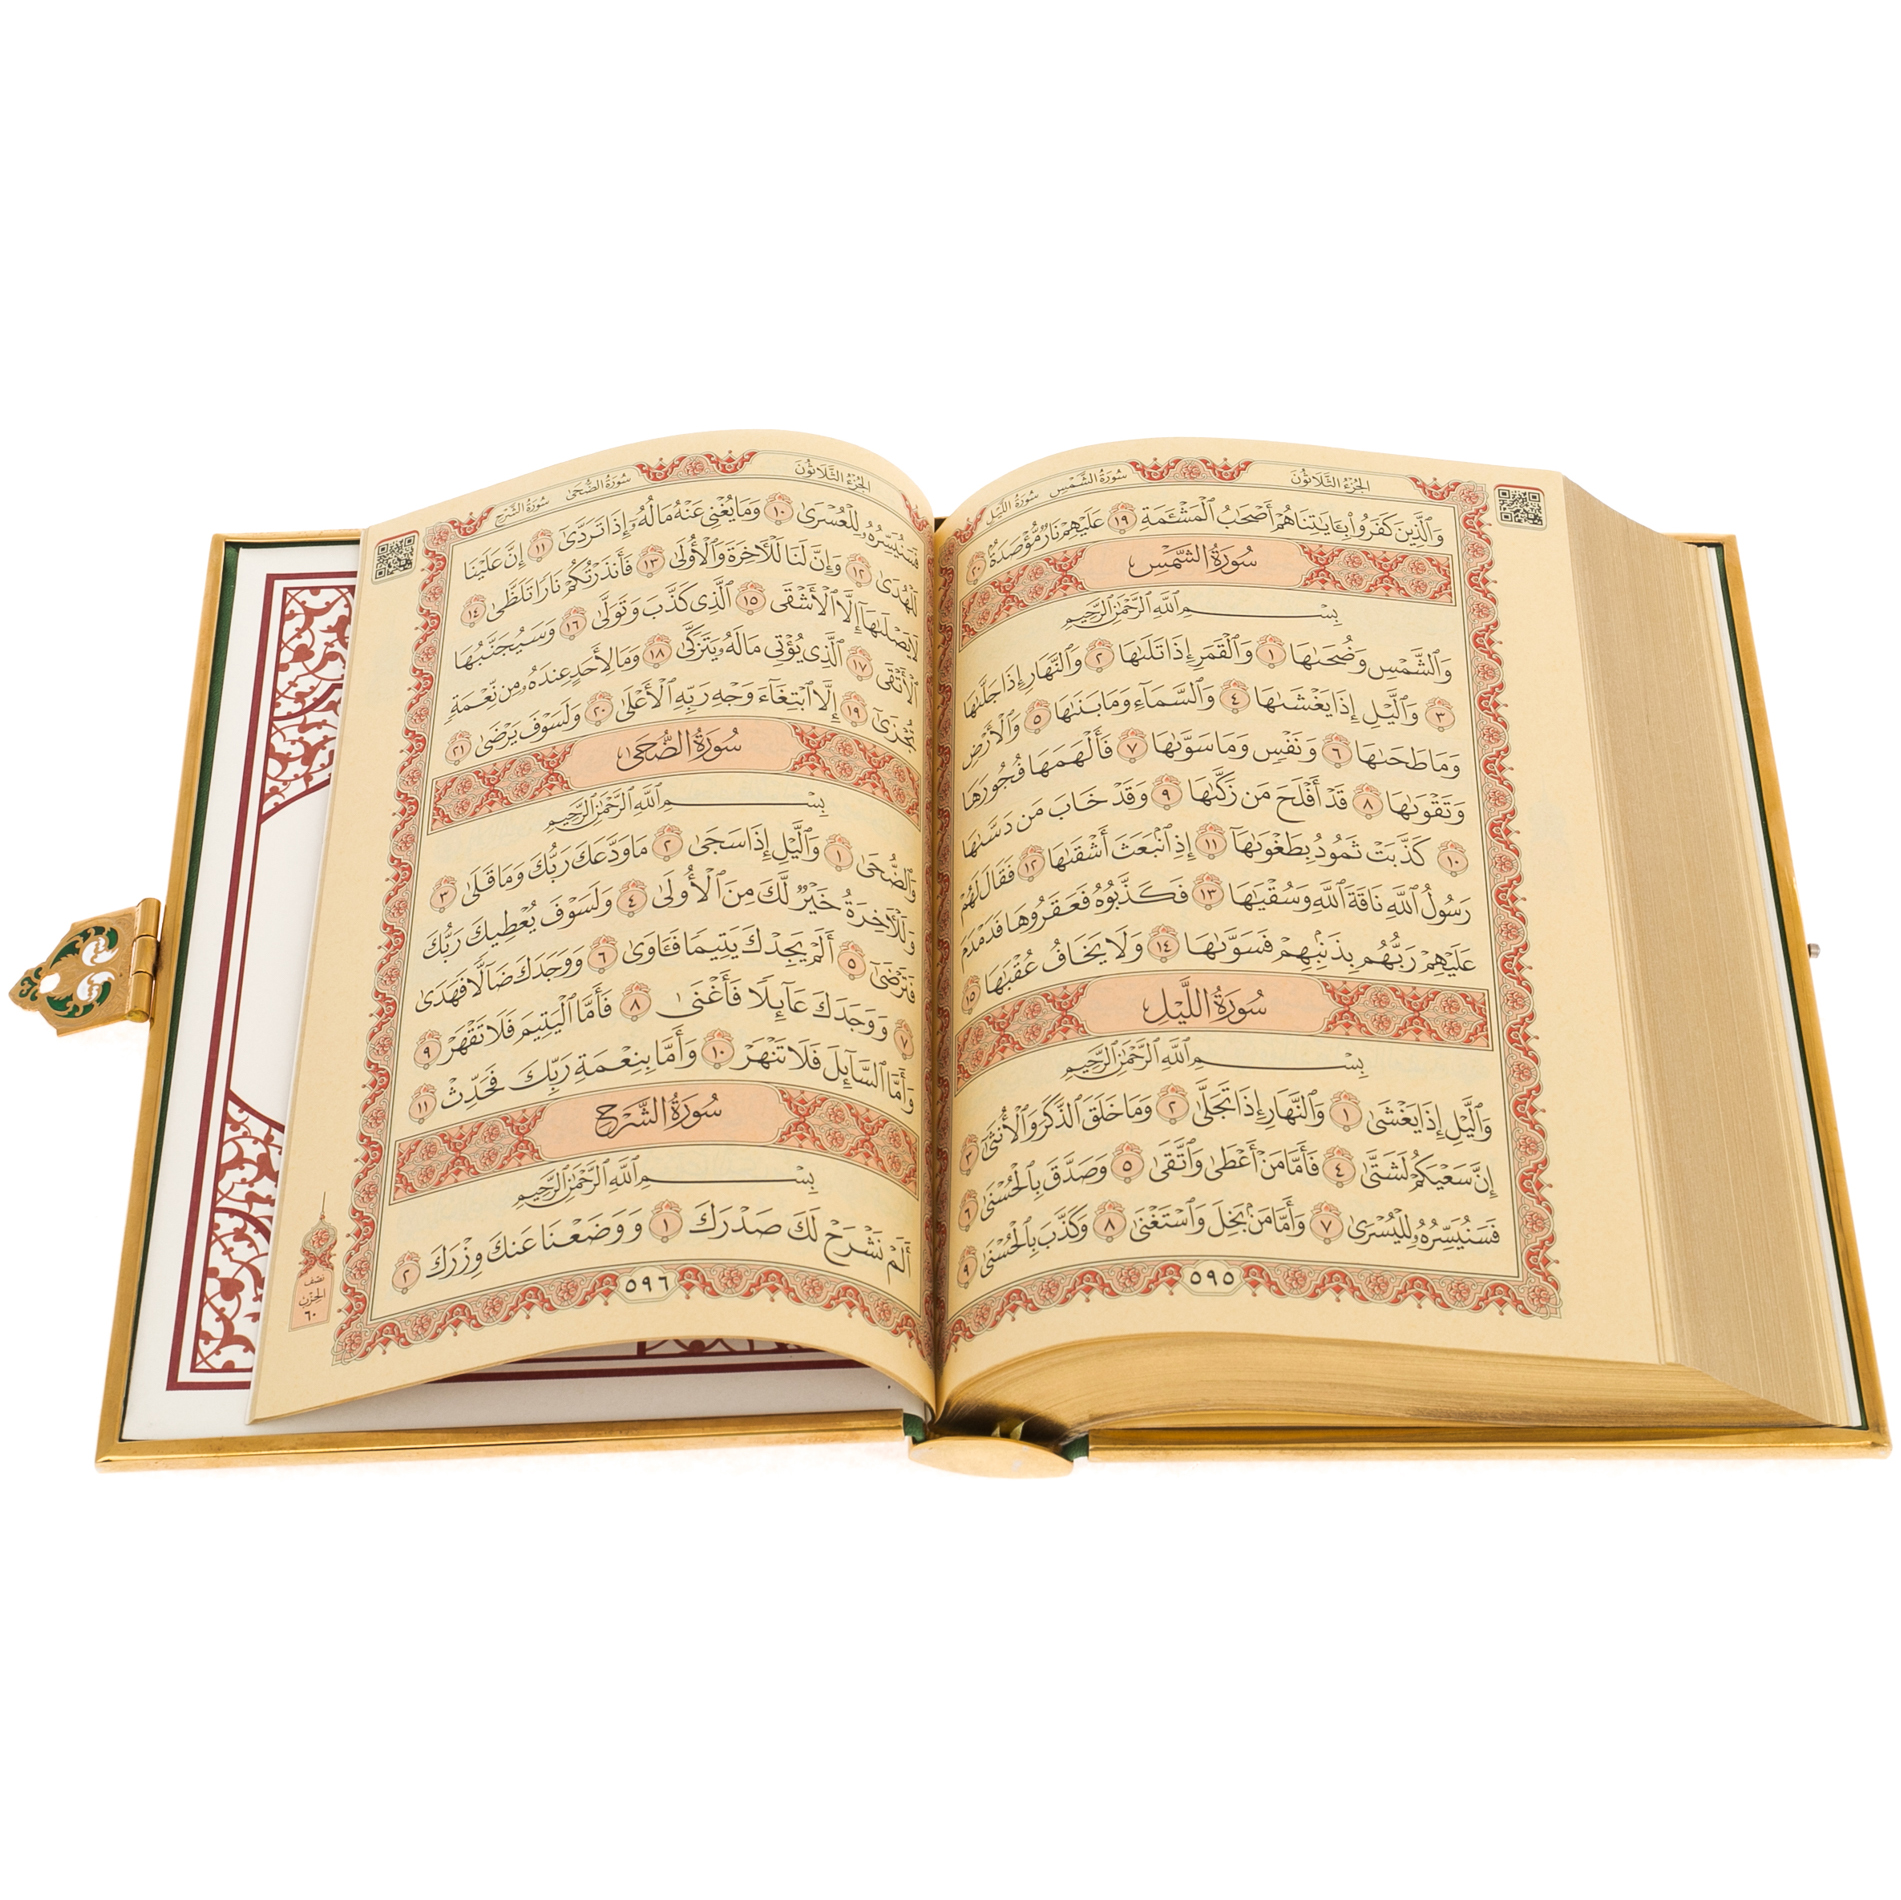 الجُزْءُ الثَّلَاثُونَ
سُورَةُ الشَّمْسِ
سُورَةُ اللَّيْلِ
وَٱلَّذِينَ كَفَرُوا۟ بِـَٔايَـٰتِنَا هُمْ أَصْحَـٰبُ ٱلْمَشْـَٔمَةِ ١٩ عَلَيْهِمْ نَارٌ مُّؤْصَدَةٌۢ ٢٠
سُورَةُ الشَّمْسِ
بِسْمِ ٱللَّهِ ٱلرَّحْمَـٰنِ ٱلرَّحِيمِ
وَٱلشَّمْسِ وَضُحَىٰهَا ١ وَٱلْقَمَرِ إِذَا تَلَىٰهَا ٢ وَٱلنَّهَارِ إِذَا جَلَّىٰهَا
٣ وَٱلَّيْلِ إِذَا يَغْشَىٰهَا ٤ وَٱلسَّمَآءِ وَمَا بَنَىٰهَا ٥ وَٱلْأَرْضِ
وَمَا طَحَىٰهَا ٦ وَنَفْسٍ وَمَا سَوَّىٰهَا ٧ فَأَلْهَمَهَا فُجُورَهَا
وَتَقْوَىٰهَا ٨ قَدْ أَفْلَحَ مَن زَكَّىٰهَا ٩ وَقَدْ خَابَ مَن دَسَّىٰهَا
١٠ كَذَّبَتْ ثَمُودُ بِطَغْوَىٰهَآ ١١ إِذِ ٱنۢبَعَثَ أَشْقَىٰهَا ١٢ فَقَالَ لَهُمْ
رَسُولُ ٱللَّهِ نَاقَةَ ٱللَّهِ وَسُقْيَـٰهَا ١٣ فَكَذَّبُوهُ فَعَقَرُوهَا فَدَمْدَمَ
عَلَيْهِمْ رَبُّهُم بِذَنۢبِهِمْ فَسَوَّىٰهَا ١٤ وَلَا يَخَافُ عُقْبَـٰهَا ١٥
سُورَةُ اللَّيْلِ
بِسْمِ ٱللَّهِ ٱلرَّحْمَـٰنِ ٱلرَّحِيمِ
وَٱلَّيْلِ إِذَا يَغْشَىٰ ١ وَٱلنَّهَارِ إِذَا تَجَلَّىٰ ٢ وَمَا خَلَقَ ٱلذَّكَرَ وَٱلْأُنثَىٰٓ ٣
إِنَّ سَعْيَكُمْ لَشَتَّىٰ ٤ فَأَمَّا مَنْ أَعْطَىٰ وَٱتَّقَىٰ ٥ وَصَدَّقَ بِٱلْحُسْنَىٰ ٦
فَسَنُيَسِّرُهُۥ لِلْيُسْرَىٰ ٧ وَأَمَّا مَنۢ بَخِلَ وَٱسْتَغْنَىٰ ٨ وَكَذَّبَ بِٱلْحُسْنَىٰ ٩
٥٩٥
الجُزْءُ الثَّلَاثُونَ
سُورَةُ الضُّحَىٰ
سُورَةُ الشَّرْحِ
فَسَنُيَسِّرُهُۥ لِلْعُسْرَىٰ ١٠ وَمَا يُغْنِى عَنْهُ مَالُهُۥٓ إِذَا تَرَدَّىٰٓ ١١ إِنَّ عَلَيْنَا
لَلْهُدَىٰ ١٢ وَإِنَّ لَنَا لَلْـَٔاخِرَةَ وَٱلْأُولَىٰ ١٣ فَأَنذَرْتُكُمْ نَارًا تَلَظَّىٰ ١٤
لَا يَصْلَىٰهَآ إِلَّا ٱلْأَشْقَى ١٥ ٱلَّذِى كَذَّبَ وَتَوَلَّىٰ ١٦ وَسَيُجَنَّبُهَا
ٱلْأَتْقَى ١٧ ٱلَّذِى يُؤْتِى مَالَهُۥ يَتَزَكَّىٰ ١٨ وَمَا لِأَحَدٍ عِندَهُۥ مِن نِّعْمَةٍ
تُجْزَىٰٓ ١٩ إِلَّا ٱبْتِغَآءَ وَجْهِ رَبِّهِ ٱلْأَعْلَىٰ ٢٠ وَلَسَوْفَ يَرْضَىٰ ٢١
سُورَةُ الضُّحَىٰ
بِسْمِ ٱللَّهِ ٱلرَّحْمَـٰنِ ٱلرَّحِيمِ
وَٱلضُّحَىٰ ١ وَٱلَّيْلِ إِذَا سَجَىٰ ٢ مَا وَدَّعَكَ رَبُّكَ وَمَا قَلَىٰ ٣
وَلَلْـَٔاخِرَةُ خَيْرٌ لَّكَ مِنَ ٱلْأُولَىٰ ٤ وَلَسَوْفَ يُعْطِيكَ رَبُّكَ
فَتَرْضَىٰٓ ٥ أَلَمْ يَجِدْكَ يَتِيمًا فَـَٔاوَىٰ ٦ وَوَجَدَكَ ضَآلًّا فَهَدَىٰ
٧ وَوَجَدَكَ عَآئِلًا فَأَغْنَىٰ ٨ فَأَمَّا ٱلْيَتِيمَ فَلَا تَقْهَرْ ٩
وَأَمَّا ٱلسَّآئِلَ فَلَا تَنْهَرْ ١٠ وَأَمَّا بِنِعْمَةِ رَبِّكَ فَحَدِّثْ ١١
سُورَةُ الشَّرْحِ
بِسْمِ ٱللَّهِ ٱلرَّحْمَـٰنِ ٱلرَّحِيمِ
أَلَمْ نَشْرَحْ لَكَ صَدْرَكَ ١ وَوَضَعْنَا عَنكَ وِزْرَكَ ٢
٥٩٦
نصف
الحزب
٦٠